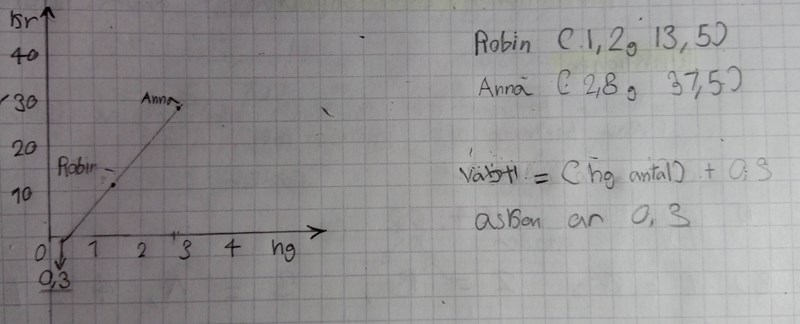 Kr
40
30
20
10
0 1 2 3 4 hg
0,3
Anna
Robin
Robin (1,2; 13,5)
Anna (2,8; 37,5)
= (hg antal) + 0,3
asken är 0,3